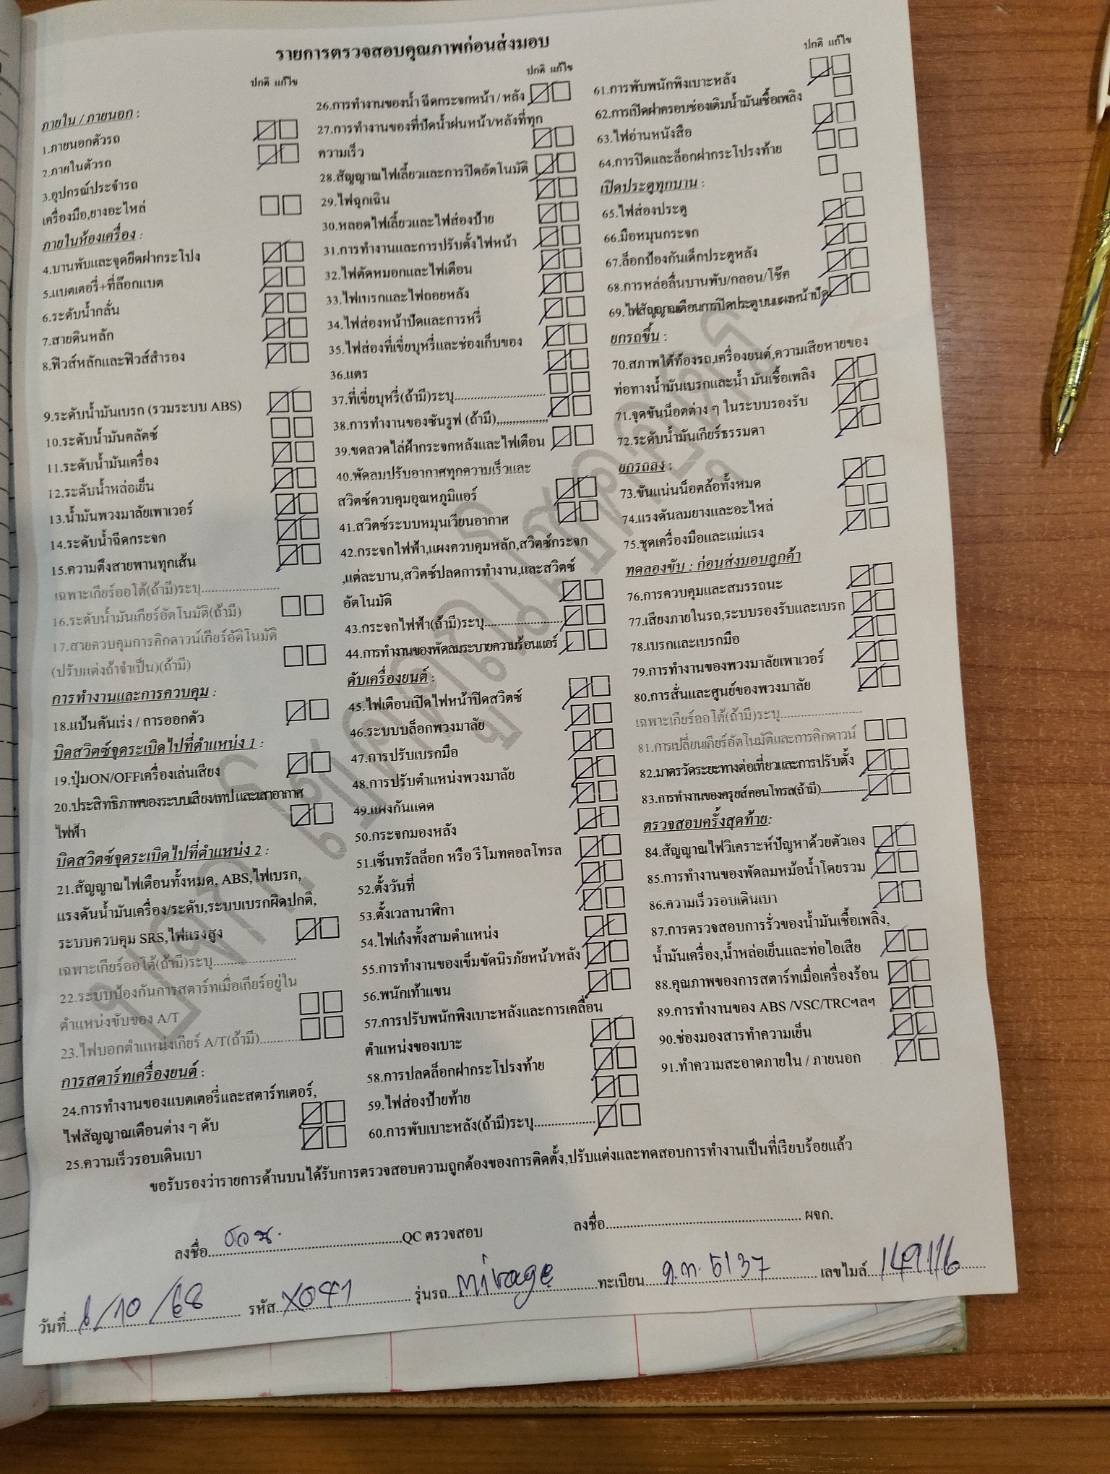 รายการตรวจสอบคุณภาพก่อนส่งมอบ
ปกติ แก้ไข
ภายใน / ภายนอก :
1.ภายนอกตัวรถ
2.ภายในตัวรถ
3.อุปกรณ์ประจำรถ
เครื่องมือ,ยางอะไหล่
ภายในห้องเครื่อง :
4.บานพับและจุดยึดฝากระโปง
5.แบตเตอรี่+ที่ล๊อกแบต
6.ระดับน้ำกลั่น
7.สายดินหลัก
8.ฟิวส์หลักและฟิวส์สำรอง
9.ระดับน้ำมันเบรก (รวมระบบ ABS)
10.ระดับน้ำมันคลัตช์
11.ระดับน้ำมันเครื่อง
12.ระดับน้ำหล่อเย็น
13.น้ำมันพวงมาลัยเพาเวอร์
14.ระดับน้ำฉีดกระจก
15.ความตึงสายพานทุกเส้น
เฉพาะเกียร์ออโต้(ถ้ามี)ระบุ
16.ระดับน้ำมันเกียร์อัตโนมัติ(ถ้ามี)
17.สายควบคุมการคิกดาวน์เกียร์อัตโนมัติ
(ปรับแต่งถ้าจำเป็น)(ถ้ามี)
การทำงานและการควบคุม :
18.แป้นคันเร่ง / การออกตัว
บิดสวิตซ์จุดระเบิดไปที่ตำแหน่ง 1 :
19.ปุ่มON/OFFเครื่องเล่นเสียง
20.ประสิทธิภาพของระบบเสียง/เทป และเสาอากาศ
ไฟฟ้า
บิดสวิตซ์จุดระเบิดไปที่ตำแหน่ง 2 :
21.สัญญาณไฟเตือนทั้งหมด, ABS,ไฟเบรก,
แรงดันน้ำมันเครื่อง/ระดับ,ระบบเบรกผิดปกติ,
ระบบควบคุม SRS,ไฟแรงสูง
เฉพาะเกียร์ออโต้(ถ้ามี)ระบุ
22.ระบบป้องกันการสตาร์ทเมื่อเกียร์อยู่ใน
ตำแหน่งขับของ A/T
23.ไฟบอกตำแหน่งเกียร์ A/T(ถ้ามี)
การสตาร์ทเครื่องยนต์ :
24.การทำงานของแบตเตอรี่และสตาร์ทเตอร์,
ไฟสัญญาณเตือนต่าง ๆ ดับ
25.ความเร็วรอบเดินเบา
ปกติ แก้ไข
26.การทำงานของน้ำ ฉีดกระจกหน้า / หลัง
27.การทำงานของที่ปัดน้ำฝนหน้า/หลังที่ทุก
ความเร็ว
28.สัญญาณไฟเลี้ยวและการปิดอัตโนมัติ
29.ไฟฉุกเฉิน
30.หลอดไฟเลี้ยวและไฟส่องป้าย
31.การทำงานและการปรับตั้งไฟหน้า
32.ไฟตัดหมอกและไฟเตือน
33.ไฟเบรกและไฟถอยหลัง
34.ไฟส่องหน้าปัดและการหรี่
35.ไฟส่องที่เขี่ยบุหรี่และช่องเก็บของ
36.แตร
37.ที่เขี่ยบุหรี่(ถ้ามี)ระบุ
38.การทำงานของซันรูฟ (ถ้ามี)
39.ขดลวดไล่ฝ้ากระจกหลังและไฟเตือน
40.พัดลมปรับอากาศทุกความเร็วและ
สวิตซ์ควบคุมอุณหภูมิแอร์
41.สวิตซ์ระบบหมุนเวียนอากาศ
42.กระจกไฟฟ้า,แผงควบคุมหลัก,สวิตซ์กระจก
,แต่ละบาน,สวิตซ์ปลดการทำงาน,และสวิตซ์
อัตโนมัติ
43.กระจกไฟฟ้า(ถ้ามี)ระบุ
44.การทำงานของพัดลมระบายความร้อนแอร์
ดับเครื่องยนต์ :
45.ไฟเตือนเปิดไฟหน้าปิดสวิตซ์
46.ระบบบล็อกพวงมาลัย
47.การปรับเบรกมือ
48.การปรับตำแหน่งพวงมาลัย
49.แผงกันแดด
50.กระจกมองหลัง
51.เซ็นทรัลล็อก หรือ รีโมทคอลโทรล
52.ตั้งวันที่
53.ตั้งเวลานาฬิกา
54.ไฟเก๋งทั้งสามตำแหน่ง
55.การทำงานของเข็มขัดนิรภัยหน้า/หลัง
56.พนักเท้าแขน
57.การปรับพนักพิงเบาะหลังและการเคลื่อน
ตำแหน่งของเบาะ
58.การปลดล็อกฝากระโปรงท้าย
59.ไฟส่องป้ายท้าย
60.การพับเบาะหลัง(ถ้ามี)ระบุ
ปกติ แก้ไข
61.การพับพนักพิงเบาะหลัง
62.การเปิดฝาครอบช่องเติมน้ำมันเชื้อเพลิง
63.ไฟอ่านหนังสือ
64.การปิดและล็อกฝากระโปรงท้าย
เปิดประตูทุกบาน :
65.ไฟส่องประตู
66.มือหมุนกระจก
67.ล็อกป้องกันเด็กประตูหลัง
68.การหล่อลื่นบานพับ/กลอน/โช๊ค
69.ไฟสัญญาณเตือนการปิดประตูบนแผงหน้าปัด
ยกรถขึ้น :
70.สภาพใต้ท้องรถ,เครื่องยนต์,ความเสียหายของ
ท่อทางน้ำมันเบรกและน้ำ มันเชื้อเพลิง
71.จุดขันน็อตต่าง ๆ ในระบบรองรับ
72.ระดับน้ำมันเกียร์ธรรมดา
ยกรถลง :
73.ขันแน่นน็อตล้อทั้งหมด
74.แรงดันลมยางและอะไหล่
75.ชุดเครื่องมือและแม่แรง
ทดลองขับ : ก่อนส่งมอบลูกค้า
76.การควบคุมและสมรรถนะ
77.เสียงภายในรถ,ระบบรองรับและเบรก
78.เบรกและเบรกมือ
79.การทำงานของพวงมาลัยเพาเวอร์
80.การสั่นและศูนย์ของพวงมาลัย
เฉพาะเกียร์ออโต้(ถ้ามี)ระบุ
81.การเปลี่ยนเกียร์อัตโนมัติและการคิกดาวน์
82.มาตรวัดระยะทางต่อเที่ยวและการปรับตั้ง
83.การทำงานของครูยส์คอนโทรล(ถ้ามี)
ตรวจสอบครั้งสุดท้าย:
84.สัญญาณไฟวิเคราะห์ปัญหาด้วยตัวเอง
85.การทำงานของพัดลมหม้อน้ำโดยรวม
86.ความเร็วรอบเดินเบา
87.การตรวจสอบการรั่วของน้ำมันเชื้อเพลิง,
น้ำมันเครื่อง,น้ำหล่อเย็นและท่อไอเสีย
88.คุณภาพของการสตาร์ทเมื่อเครื่องร้อน
89.การทำงานของ ABS /VSC/TRCฯลฯ
90.ช่องมองสารทำความเย็น
91.ทำความสะอาดภายใน / ภายนอก
ขอรับรองว่ารายการด้านบนได้รับการตรวจสอบความถูกต้องของการติดตั้ง,ปรับแต่งและทดสอบการทำงานเป็นที่เรียบร้อยแล้ว
ลงชื่อ QC ตรวจสอบ ลงชื่อ ผจก.
วันที่ 6/10/68 รหัส X041 รุ่นรถ Mirage ทะเบียน 5137 เลขไมล์ 149116